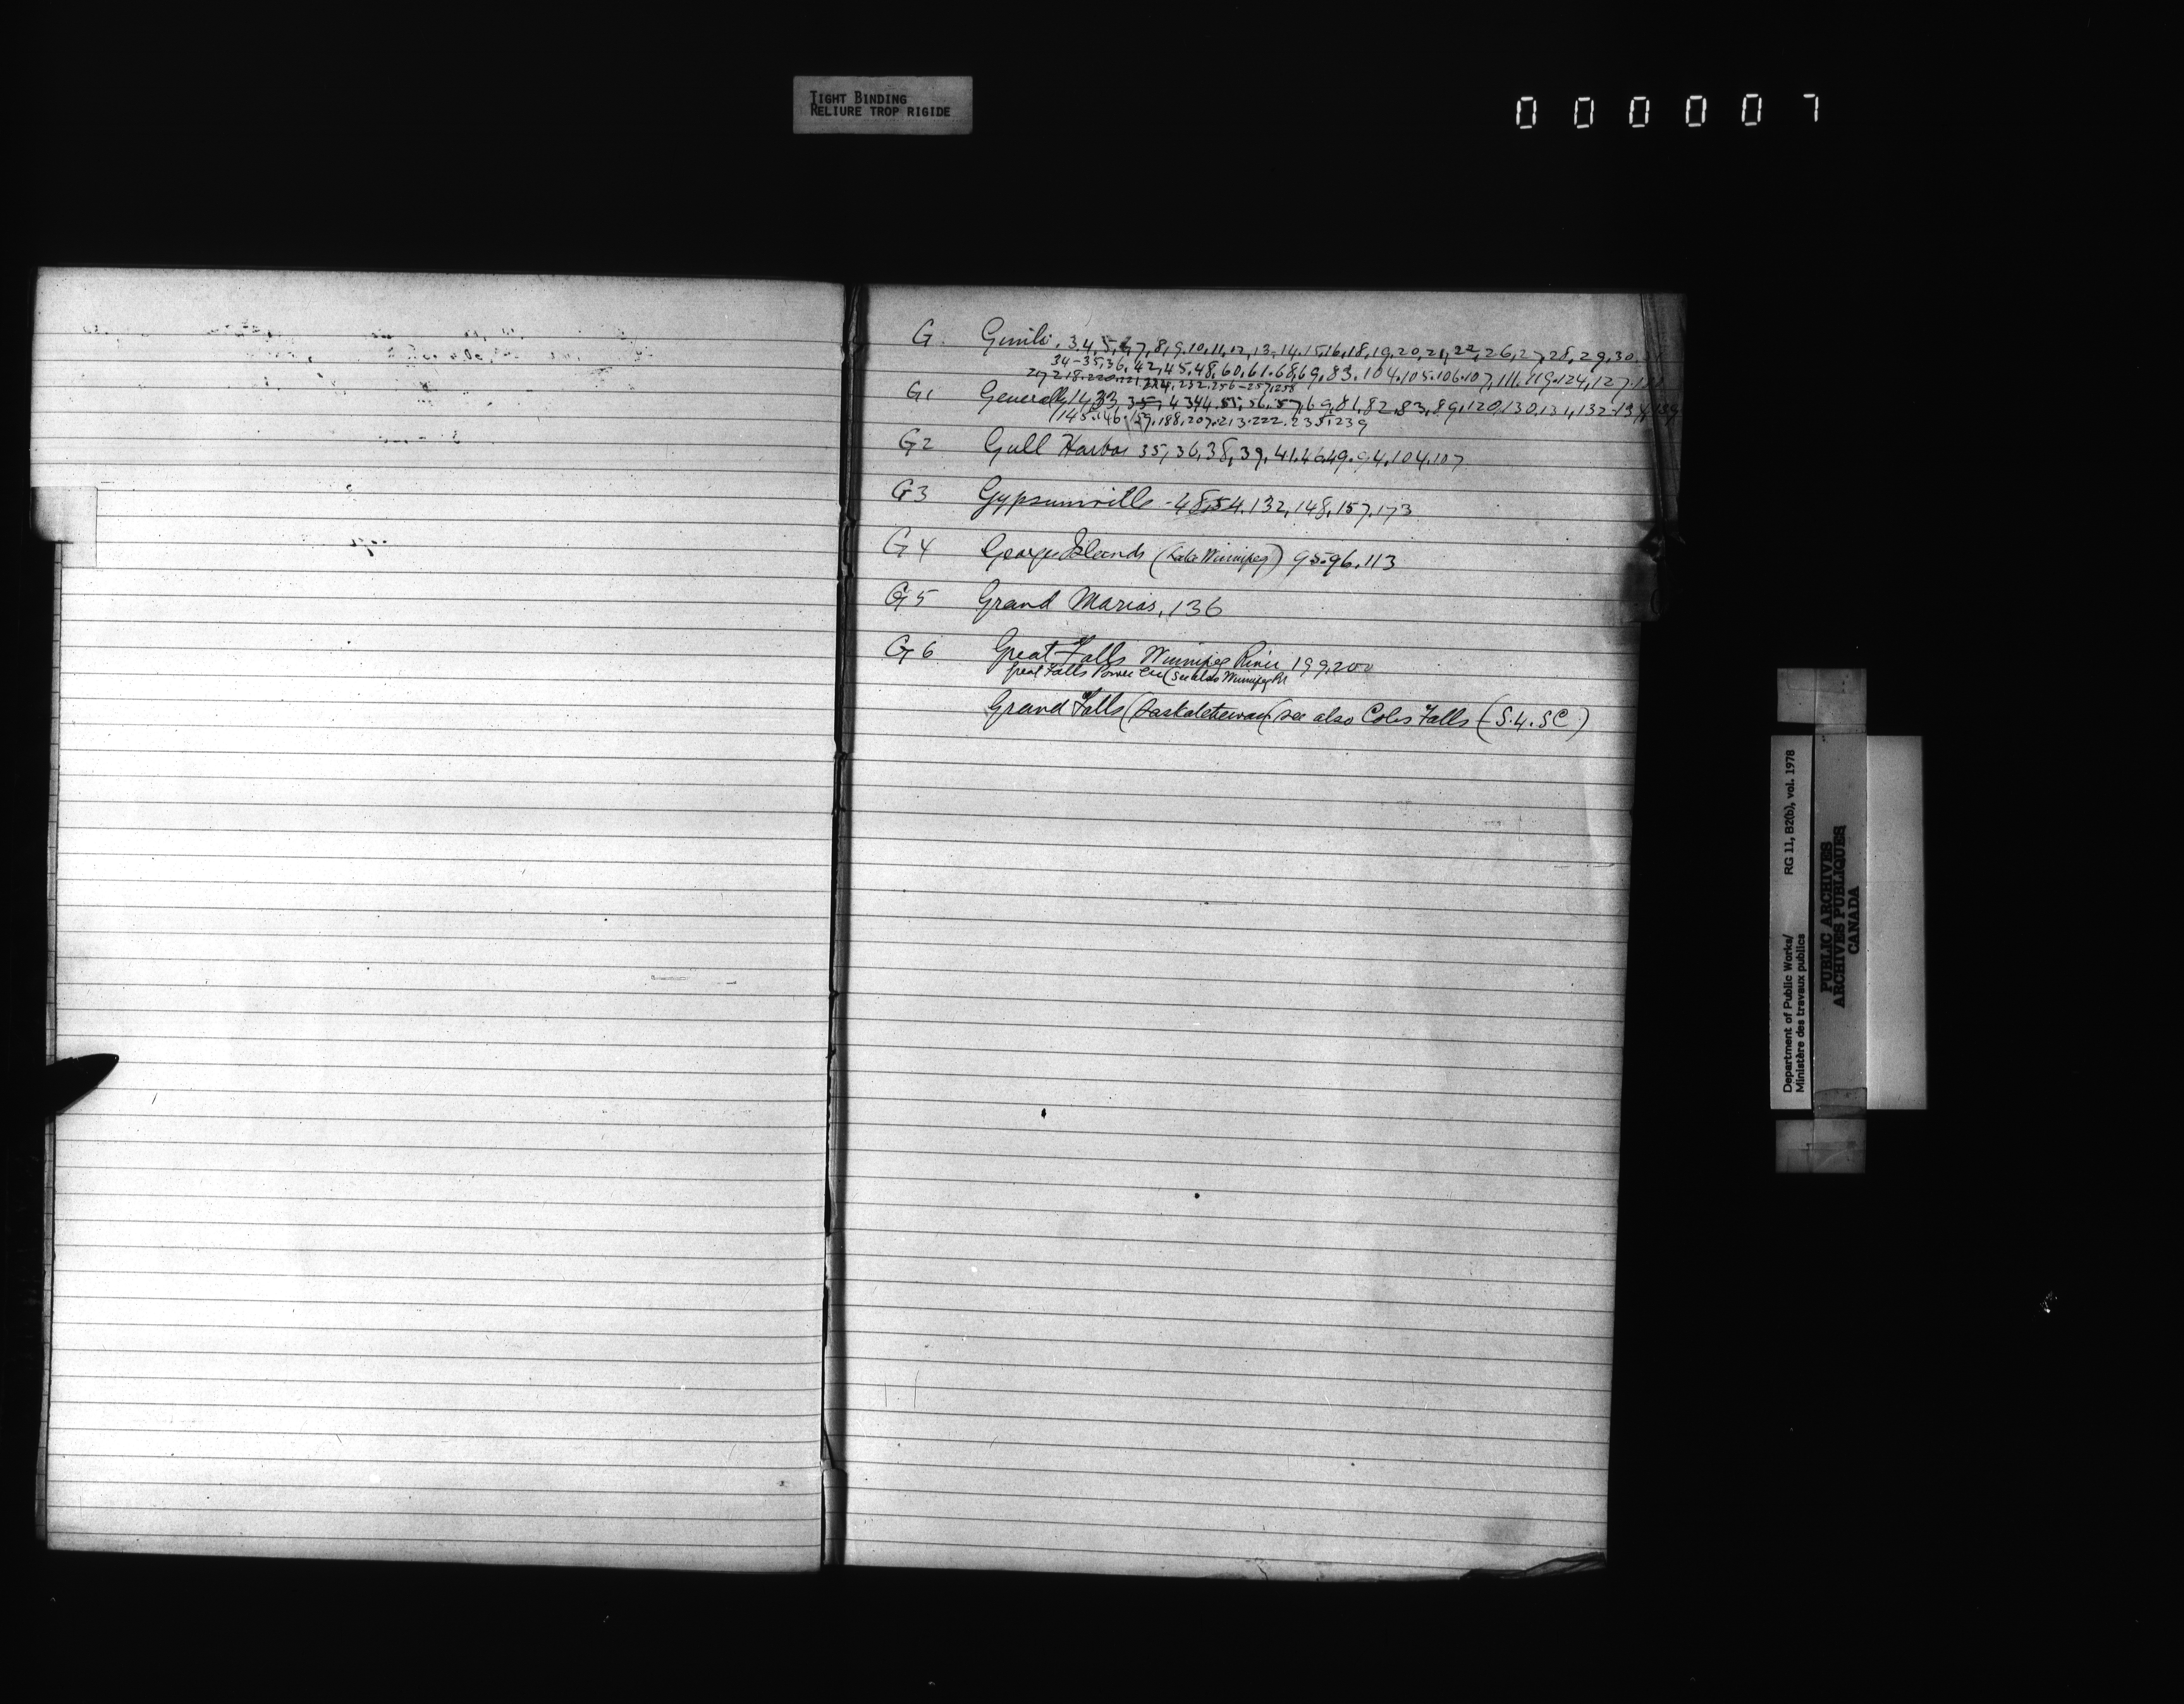 TIGHT BINDING
RELIURE TROP RIGIDE
000007
G Gimli. 3,4,5,6,7,8,9,10,11,12,13,14,15,16,18,19,20,21,22,26,27,28,29,30,31
34-35,36,42,45,48,60,61,68,69,83,104,105,106,107,111,119,124,127
217,218,220,221,224,232,256-257,258
G1 Generally 14,33,35,43,44,55,56,57,69,81,82,83,89,120,130,131,132-134,139
145,146,159,188,207,213,222,235,239
G2 Gull Harbor 35,36,38,39,41,46,49,94,104,107
G3 Gypsumville - 48,54,132,148,157,173
G4 Georges Islands (Lake Winnipeg) 95-96,113
G5 Grand Marias, 136
G6 Great Falls Winnipeg River 199,200
Great Falls Power (see also Winnipeg R
Grand Falls (Saskatchewan (see also Coles Falls (S.4.SC)
Department of Public Works/ RG 11, B2(b), vol. 1978
Ministère des travaux publics
PUBLIC ARCHIVES
ARCHIVES PUBLIQUES
CANADA